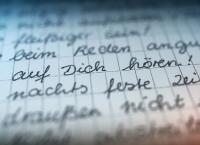 fleißiger sein!
beim Reden angu
auf Dich hören!
nachts feste Zei
draußen nicht